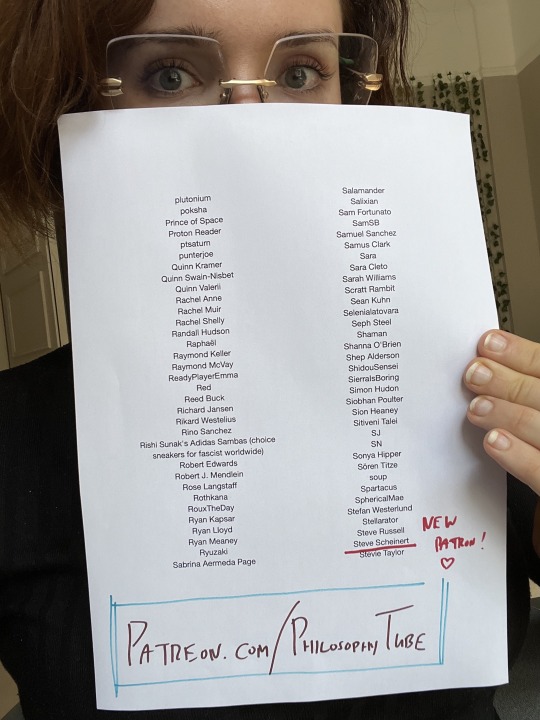 plutonium
poksha
Prince of Space
Proton Reader
ptsatum
punterjoe
Quinn Kramer
Quinn Swain-Nisbet
Quinn Valerii
Rachel Anne
Rachel Muir
Rachel Shelly
Randall Hudson
Raphaël
Raymond Keller
Raymond McVay
ReadyPlayerEmma
Red
Reed Buck
Richard Jansen
Rikard Westelius
Rino Sanchez
Rishi Sunak's Adidas Sambas (choice
sneakers for fascist worldwide)
Robert Edwards
Robert J. Mendlein
Rose Langstaff
Rothkana
RouxTheDay
Ryan Kapsar
Ryan Lloyd
Ryan Meaney
Ryuzaki
Sabrina Aermeda Page
Salamander
Salixian
Sam Fortunato
SamSB
Samuel Sanchez
Samus Clark
Sara
Sara Cleto
Sarah Williams
Scratt Rambit
Sean Kuhn
Selenialatovara
Seph Steel
Shaman
Shanna O'Brien
Shep Alderson
ShidouSensei
SierraIsBoring
Simon Hudon
Siobhan Poulter
Sion Heaney
Sitiveni Talei
SJ
SN
Sonya Hipper
Sören Titze
soup
Spartacus
SphericalMae
Stefan Westerlund
Stellarator
Steve Russell
Steve Scheinert
Stevie Taylor
NEW
PATRON!
PATREON.COM/PHILOSOPHYTUBE